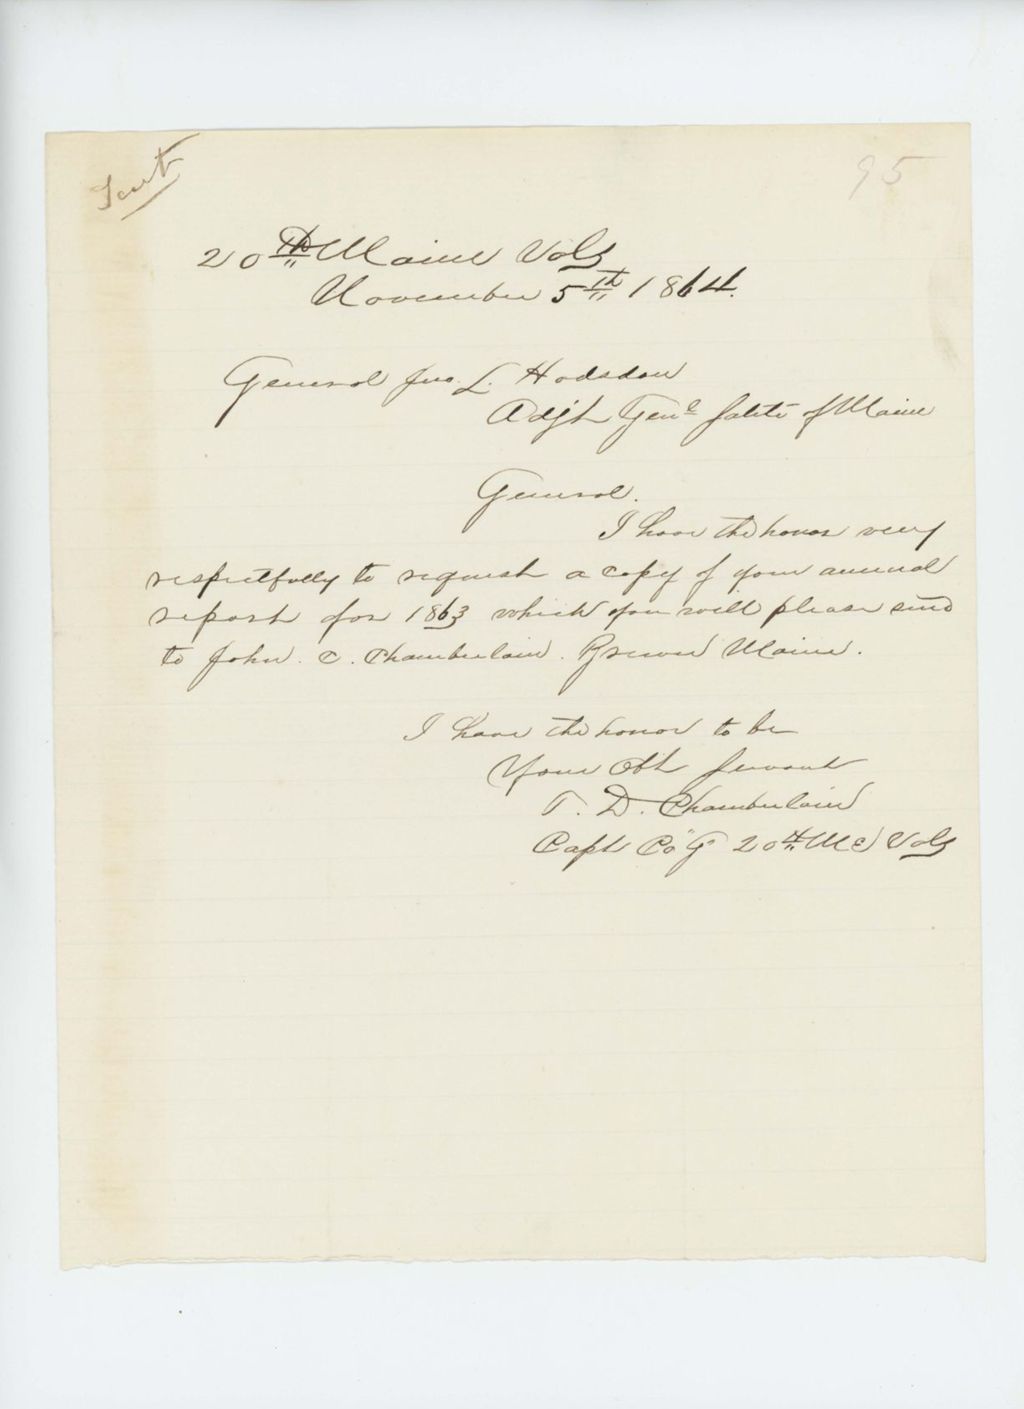 Sent
95
20th Maine Vols
November 5th 1864.
General Jno. L. Hodsdon
Adjt Genl State of Maine
General.
I have the honor very
respectfully to request a copy of your annual
report for 1863 which you will please send
to John. C. Chamberlain. Brewer Maine.
I have the honor to be
Your Obt Servant
T. D. Chamberlain
Capt Co "G" 20th Me Vols